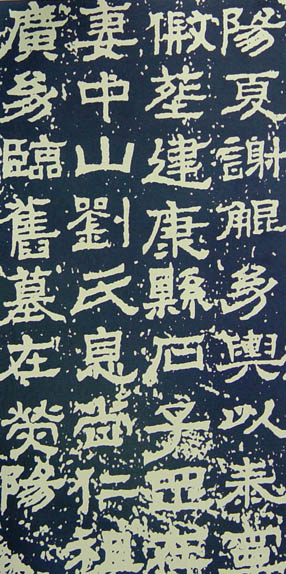 陽夏謝鯤幼輿以泰寧
假葬建康縣石子罡在
妻中山劉氏息尚仁祖
廣幼臨舊墓在熒陽